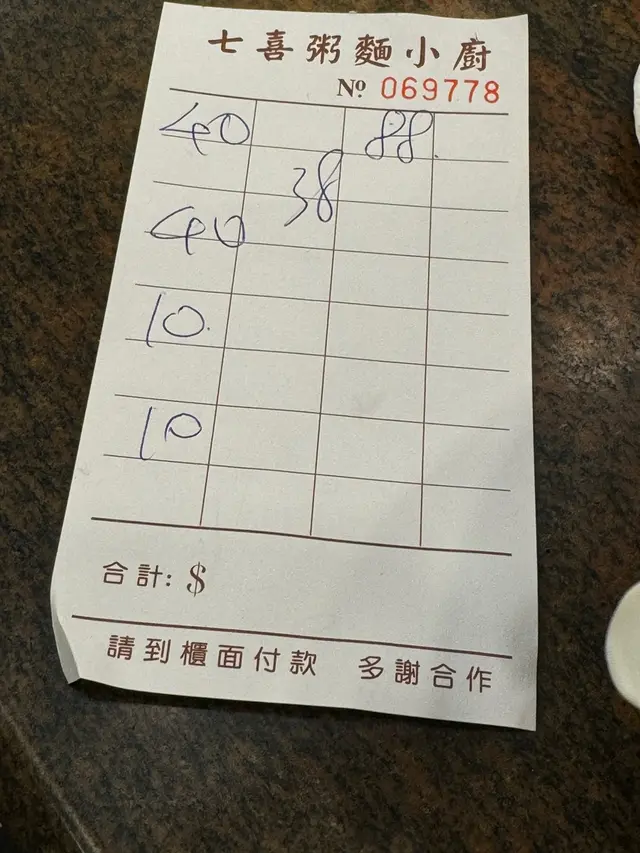 七喜粥麵小廚
Nº 069778
40 88
38
40
10.
10
合計: $
請到櫃面付款 多謝合作